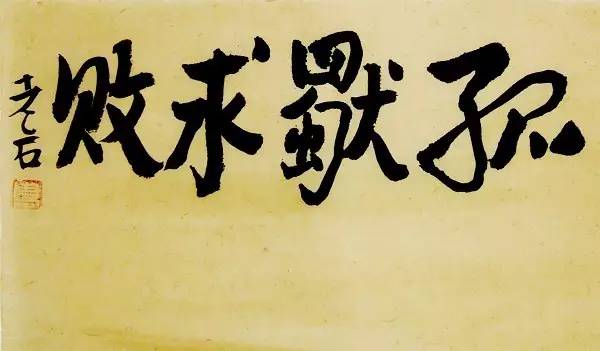 孤獨求敗
老石